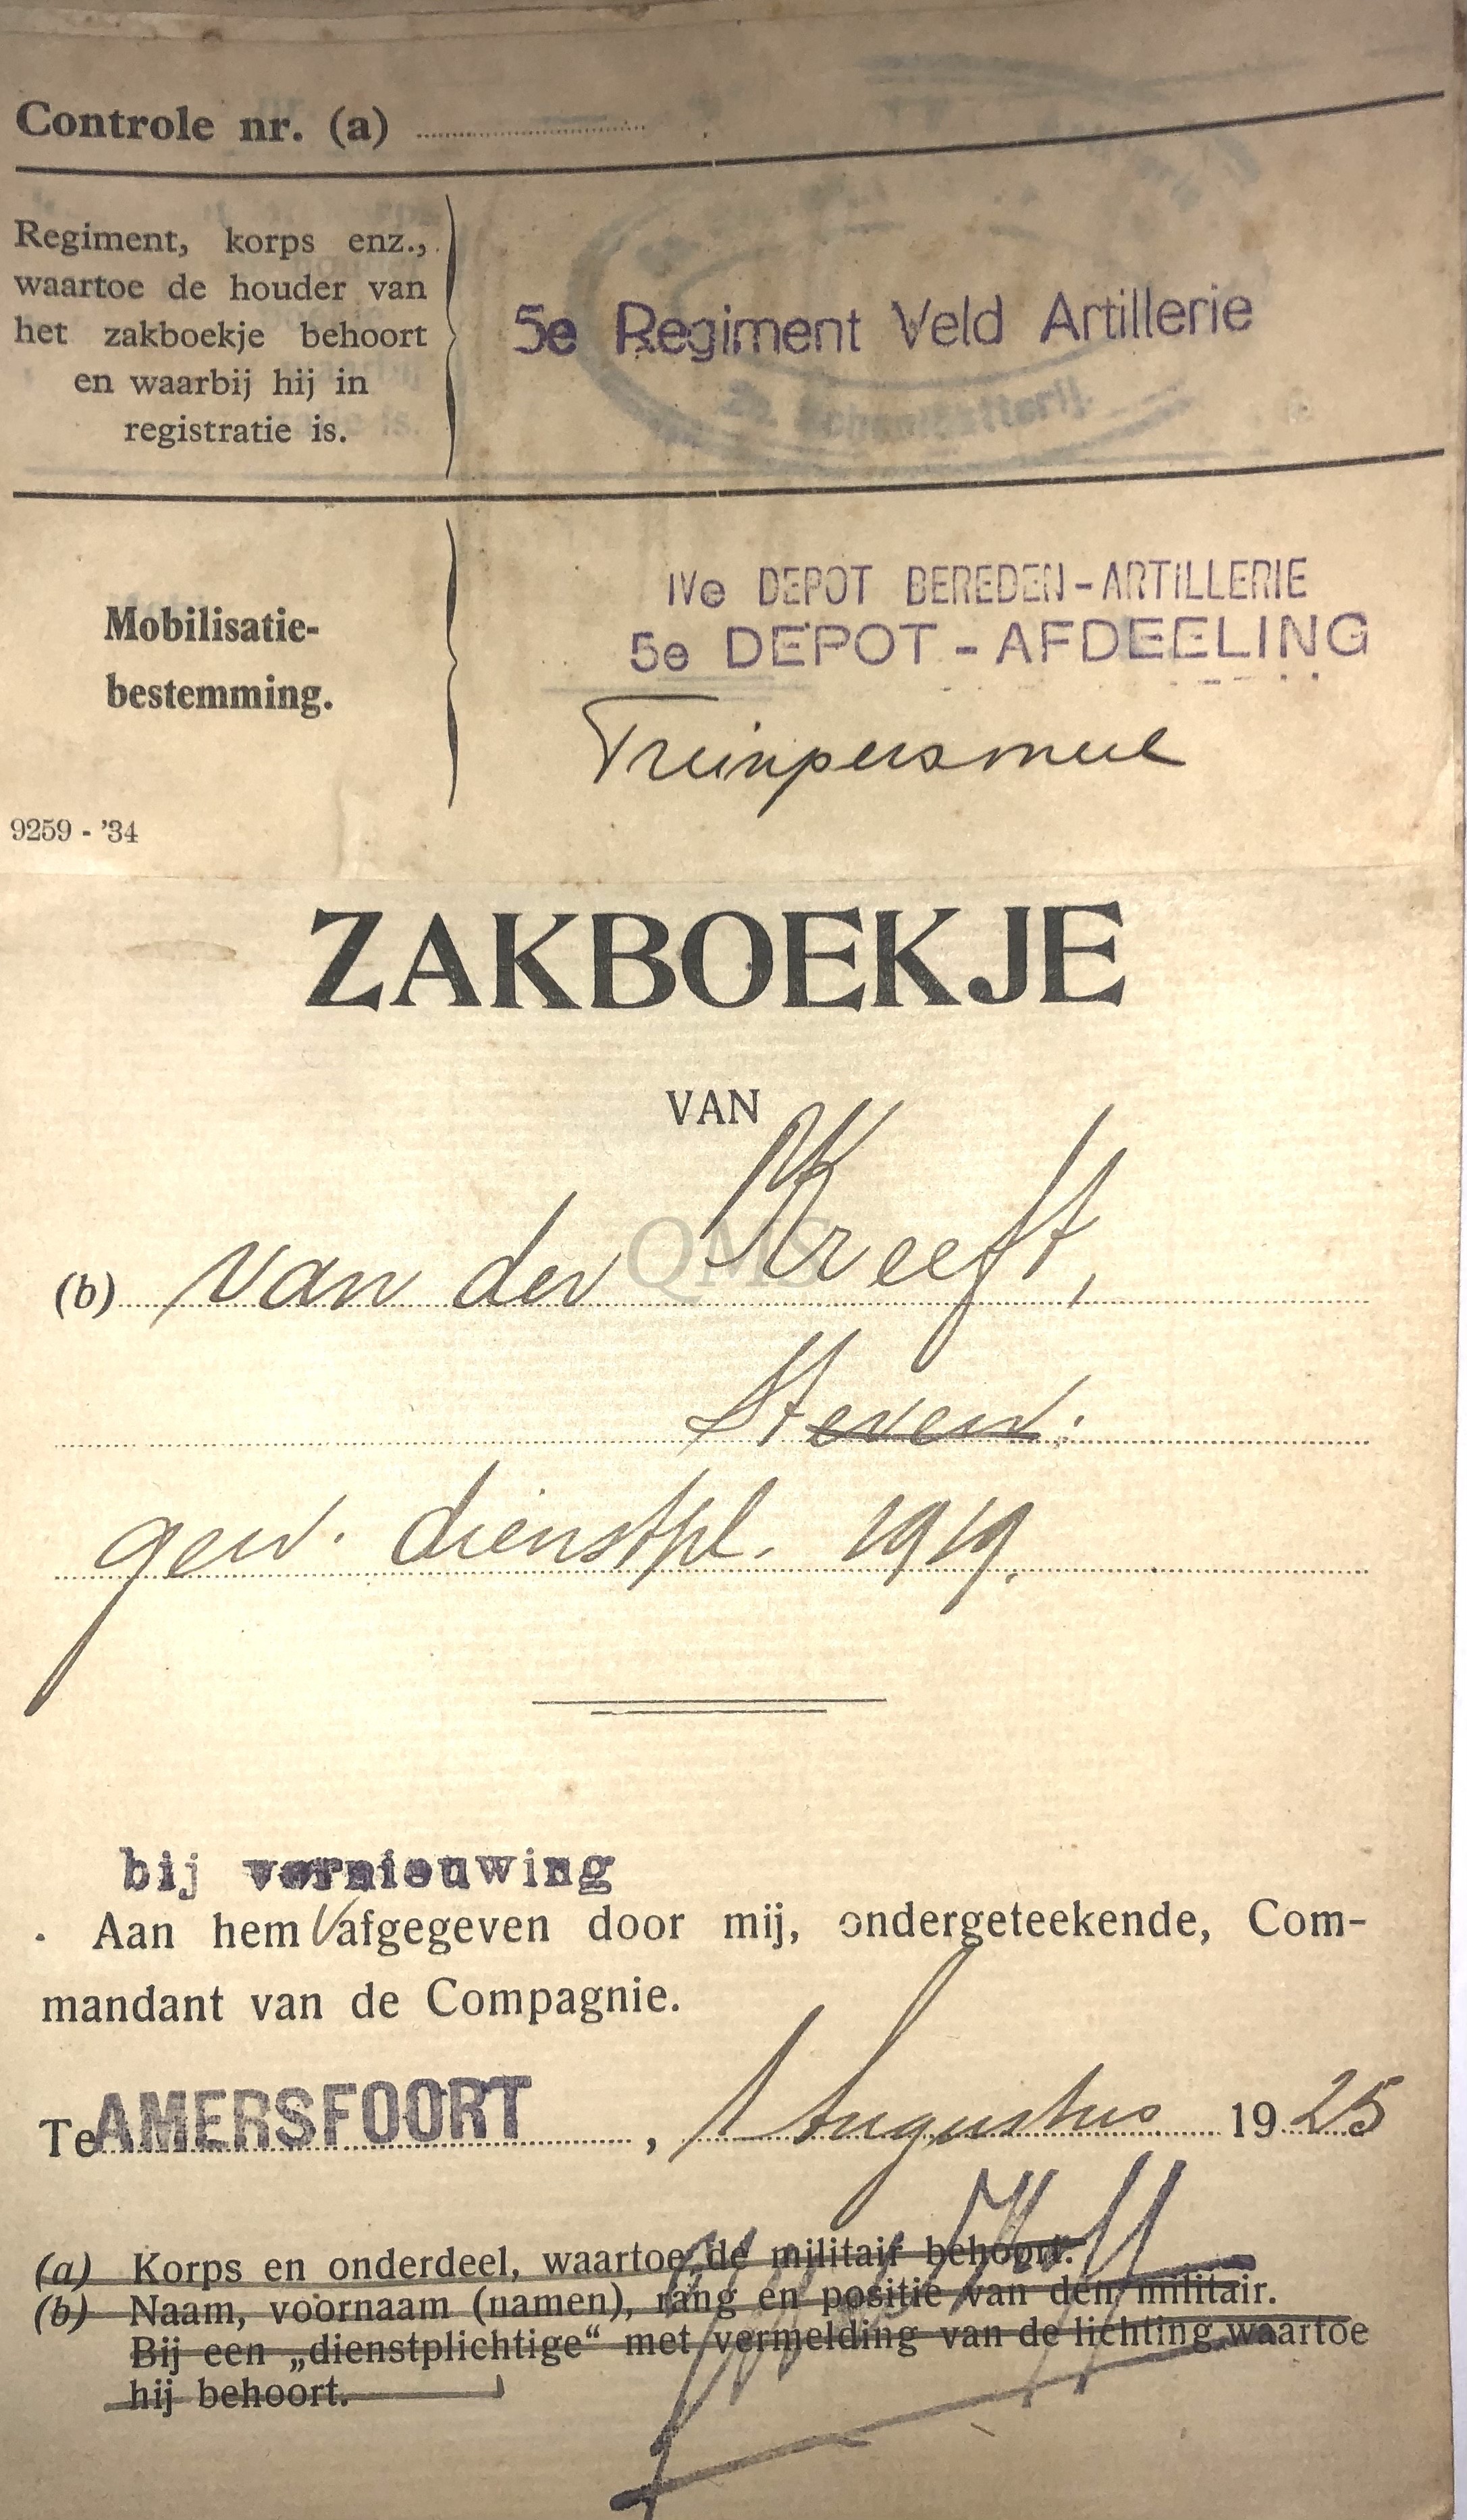 Controle nr. (a)
Regiment, korps enz.,
waartoe de houder van
het zakboekje behoort
en waarbij hij in
registratie is.
5e Regiment Veld Artillerie
Schoolbatterij.
Mobilisatie-
bestemming.
IVe DEPOT BEREDEN-ARTILLERIE
5e DEPOT - AFDEELING
Treinpersoneel
9259 - '34
ZAKBOEKJE
VAN
QMS
(b) van der Kreeft,
Steven.
gew. dienstpl. 1919.
bij vernieuwing
Aan hem √ afgegeven door mij, ondergeteekende, Com-
mandant van de Compagnie.
Te AMERSFOORT, 1 Augustus 1925
(a) Korps en onderdeel, waartoe de militair behoort.
(b) Naam, voornaam (namen), rang en positie van den militair.
Bij een „dienstplichtige“ met vermelding van de lichting waartoe
hij behoort.